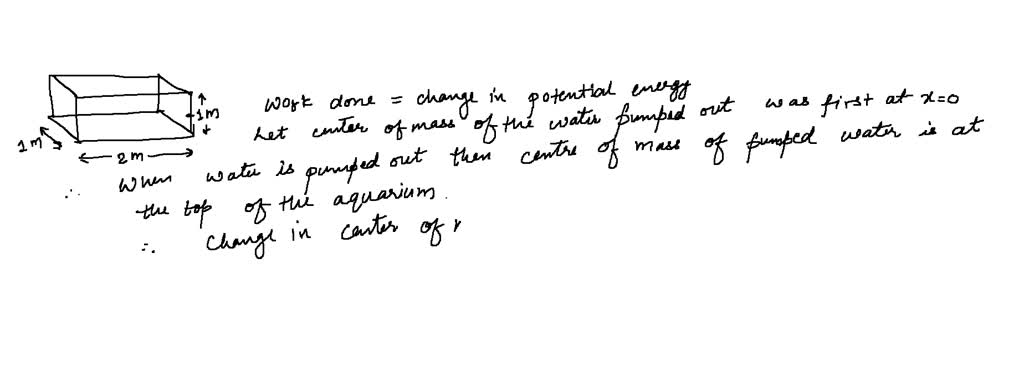 Work done = change in potential energy
Let center of mass of the water pumped out was first at x=0
∴ When water is pumped out then centre of mass of pumped water is at
the top of the aquarium.
∴ Change in center of
1m
1m
2m